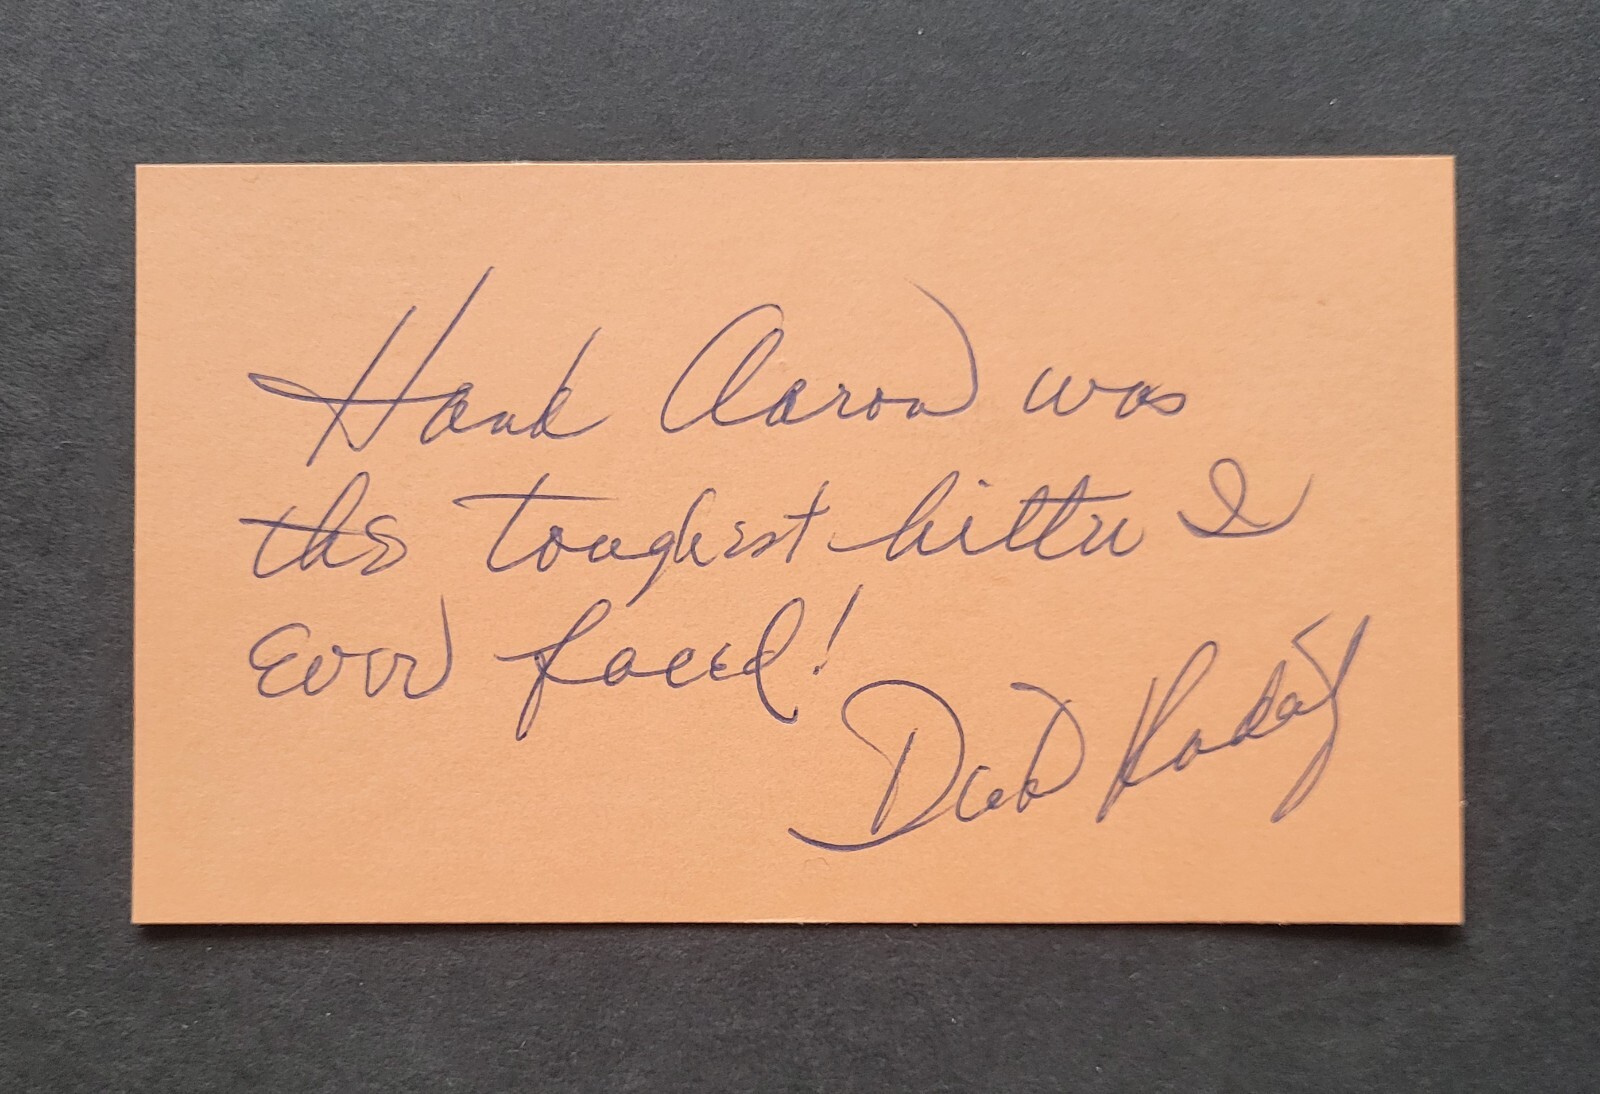 Hank Aaron was
the toughest hitter I
Ever faced!
Dick